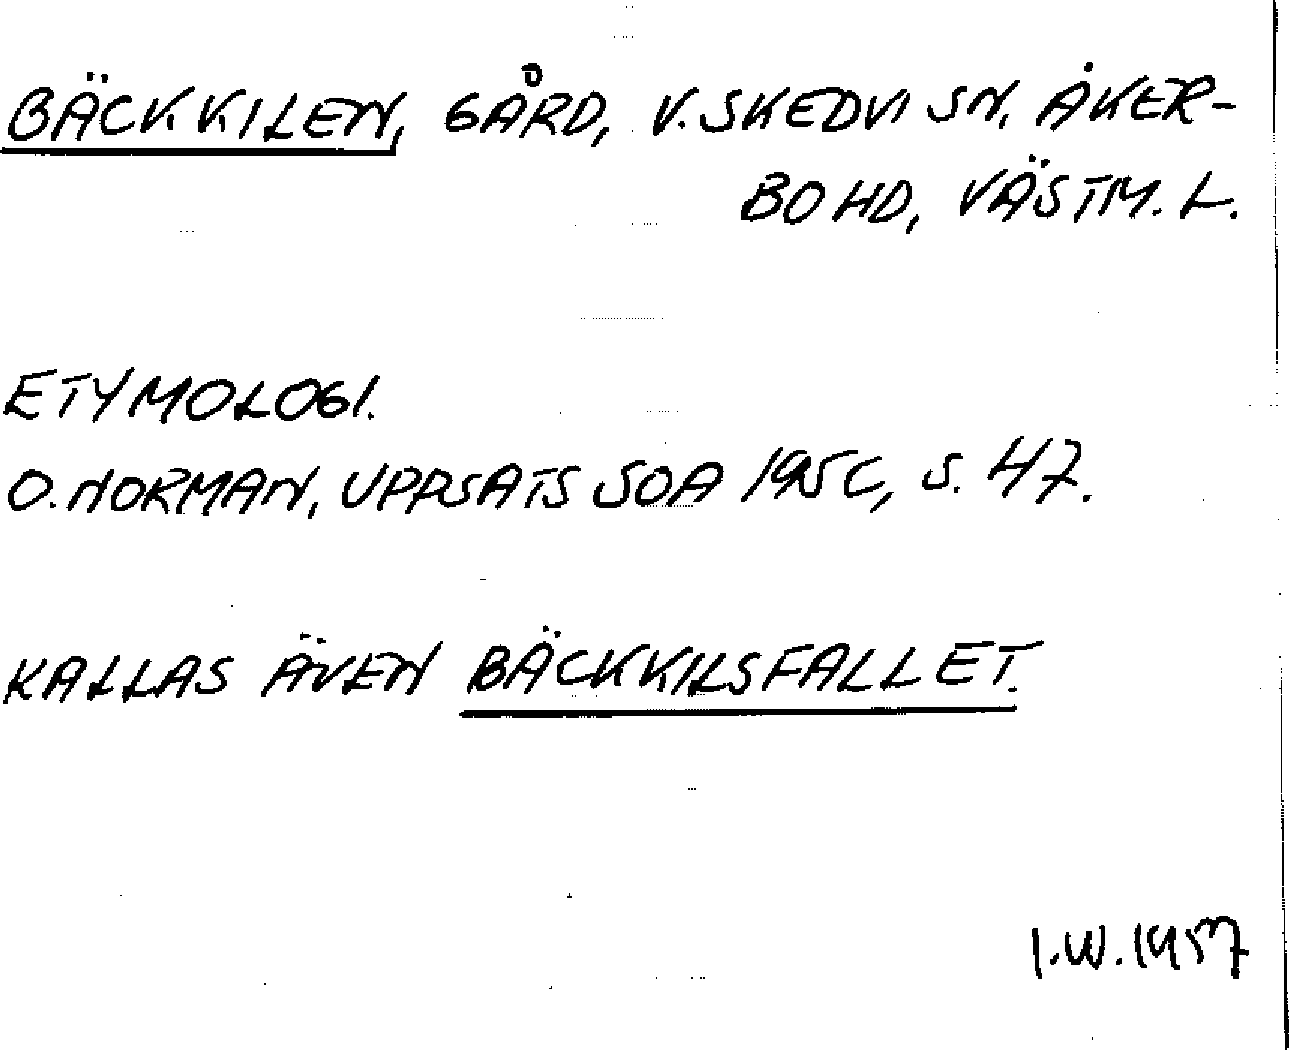 BÄCKKILEN, GÅRD, V. SKEDVI SN, ÅKER-
BO HD, VÄSTM. L.
ETYMOLOGI.
O. NORMAN, UPPSATS SOA 195C, S. 47.
KALLAS ÄVEN BÄCKKILSFALLET.
I.W. 1957